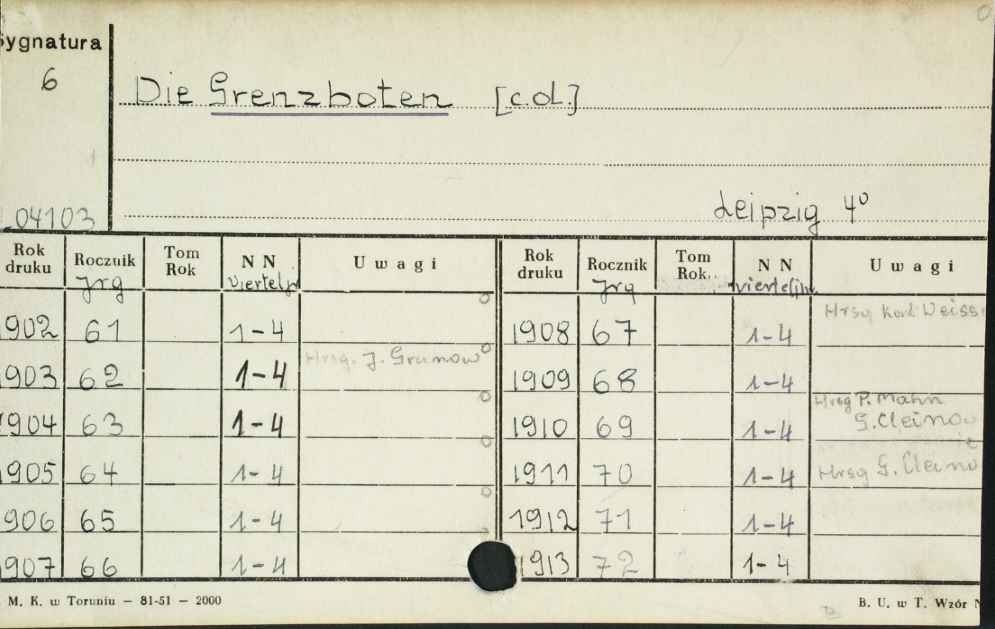 Sygnatura
6
Die Grenzboten [c.d.]
04103
Leipzig 4º
Rok druku Rocznik Tom Rok N N Uwagi Rok druku Rocznik Tom Rok N N Uwagi
Jrg Viertelj. Jrg vierteljhr.
1902 61 1-4 1908 67 1-4 Hrsg Karl Weiss
1903 62 1-4 Hrsg. J. Grunow 1909 68 1-4
1904 63 1-4 1910 69 1-4 Hrsg P. Mahn G. Cleinow
1905 64 1-4 1911 70 1-4 Hrsg G. Cleino
1906 65 1-4 1912 71 1-4
1907 66 1-4 1913 72 1-4
M. K. w Toruniu — 81-51 — 2000 B. U. w T. Wzór N